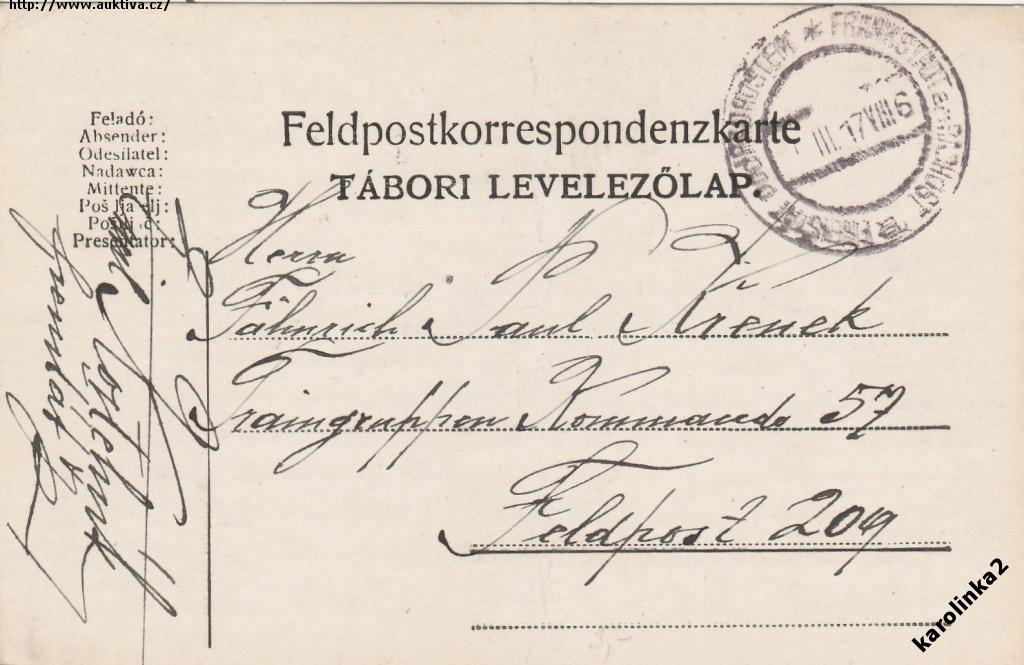 http://www.auktiva.cz/
Feladó:
Absender:
Odesílatel:
Nadawca:
Mittente:
Pošiljatelj:
Presentator:
Feldpostkorrespondenzkarte
TÁBORI LEVELEZŐLAP.
FRANKSTADT a/RADHOST
III. 17 VIII 6
Herrn
Fähnrich Paul Křenek
Traingruppen Kommando 57
Feldpost 209
karolinka2